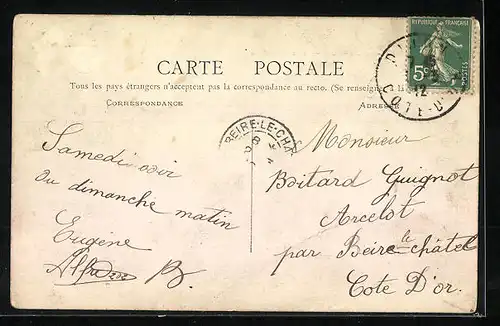 RÉPUBLIQUE FRANÇAISE
5c
POSTES
12
CÔTE-D'OR
CARTE POSTALE
Tous les pays étrangers n'acceptent pas la correspondance au recto. (Se renseigner
CORRESPONDANCE
ADRESSE
BEIRE-LE-CHA
Samedi soir
ou dimanche matin
Eugène
B.
Monsieur
Boitard Guignot
Arcelot
par Beire le châtel
Cote D'or.